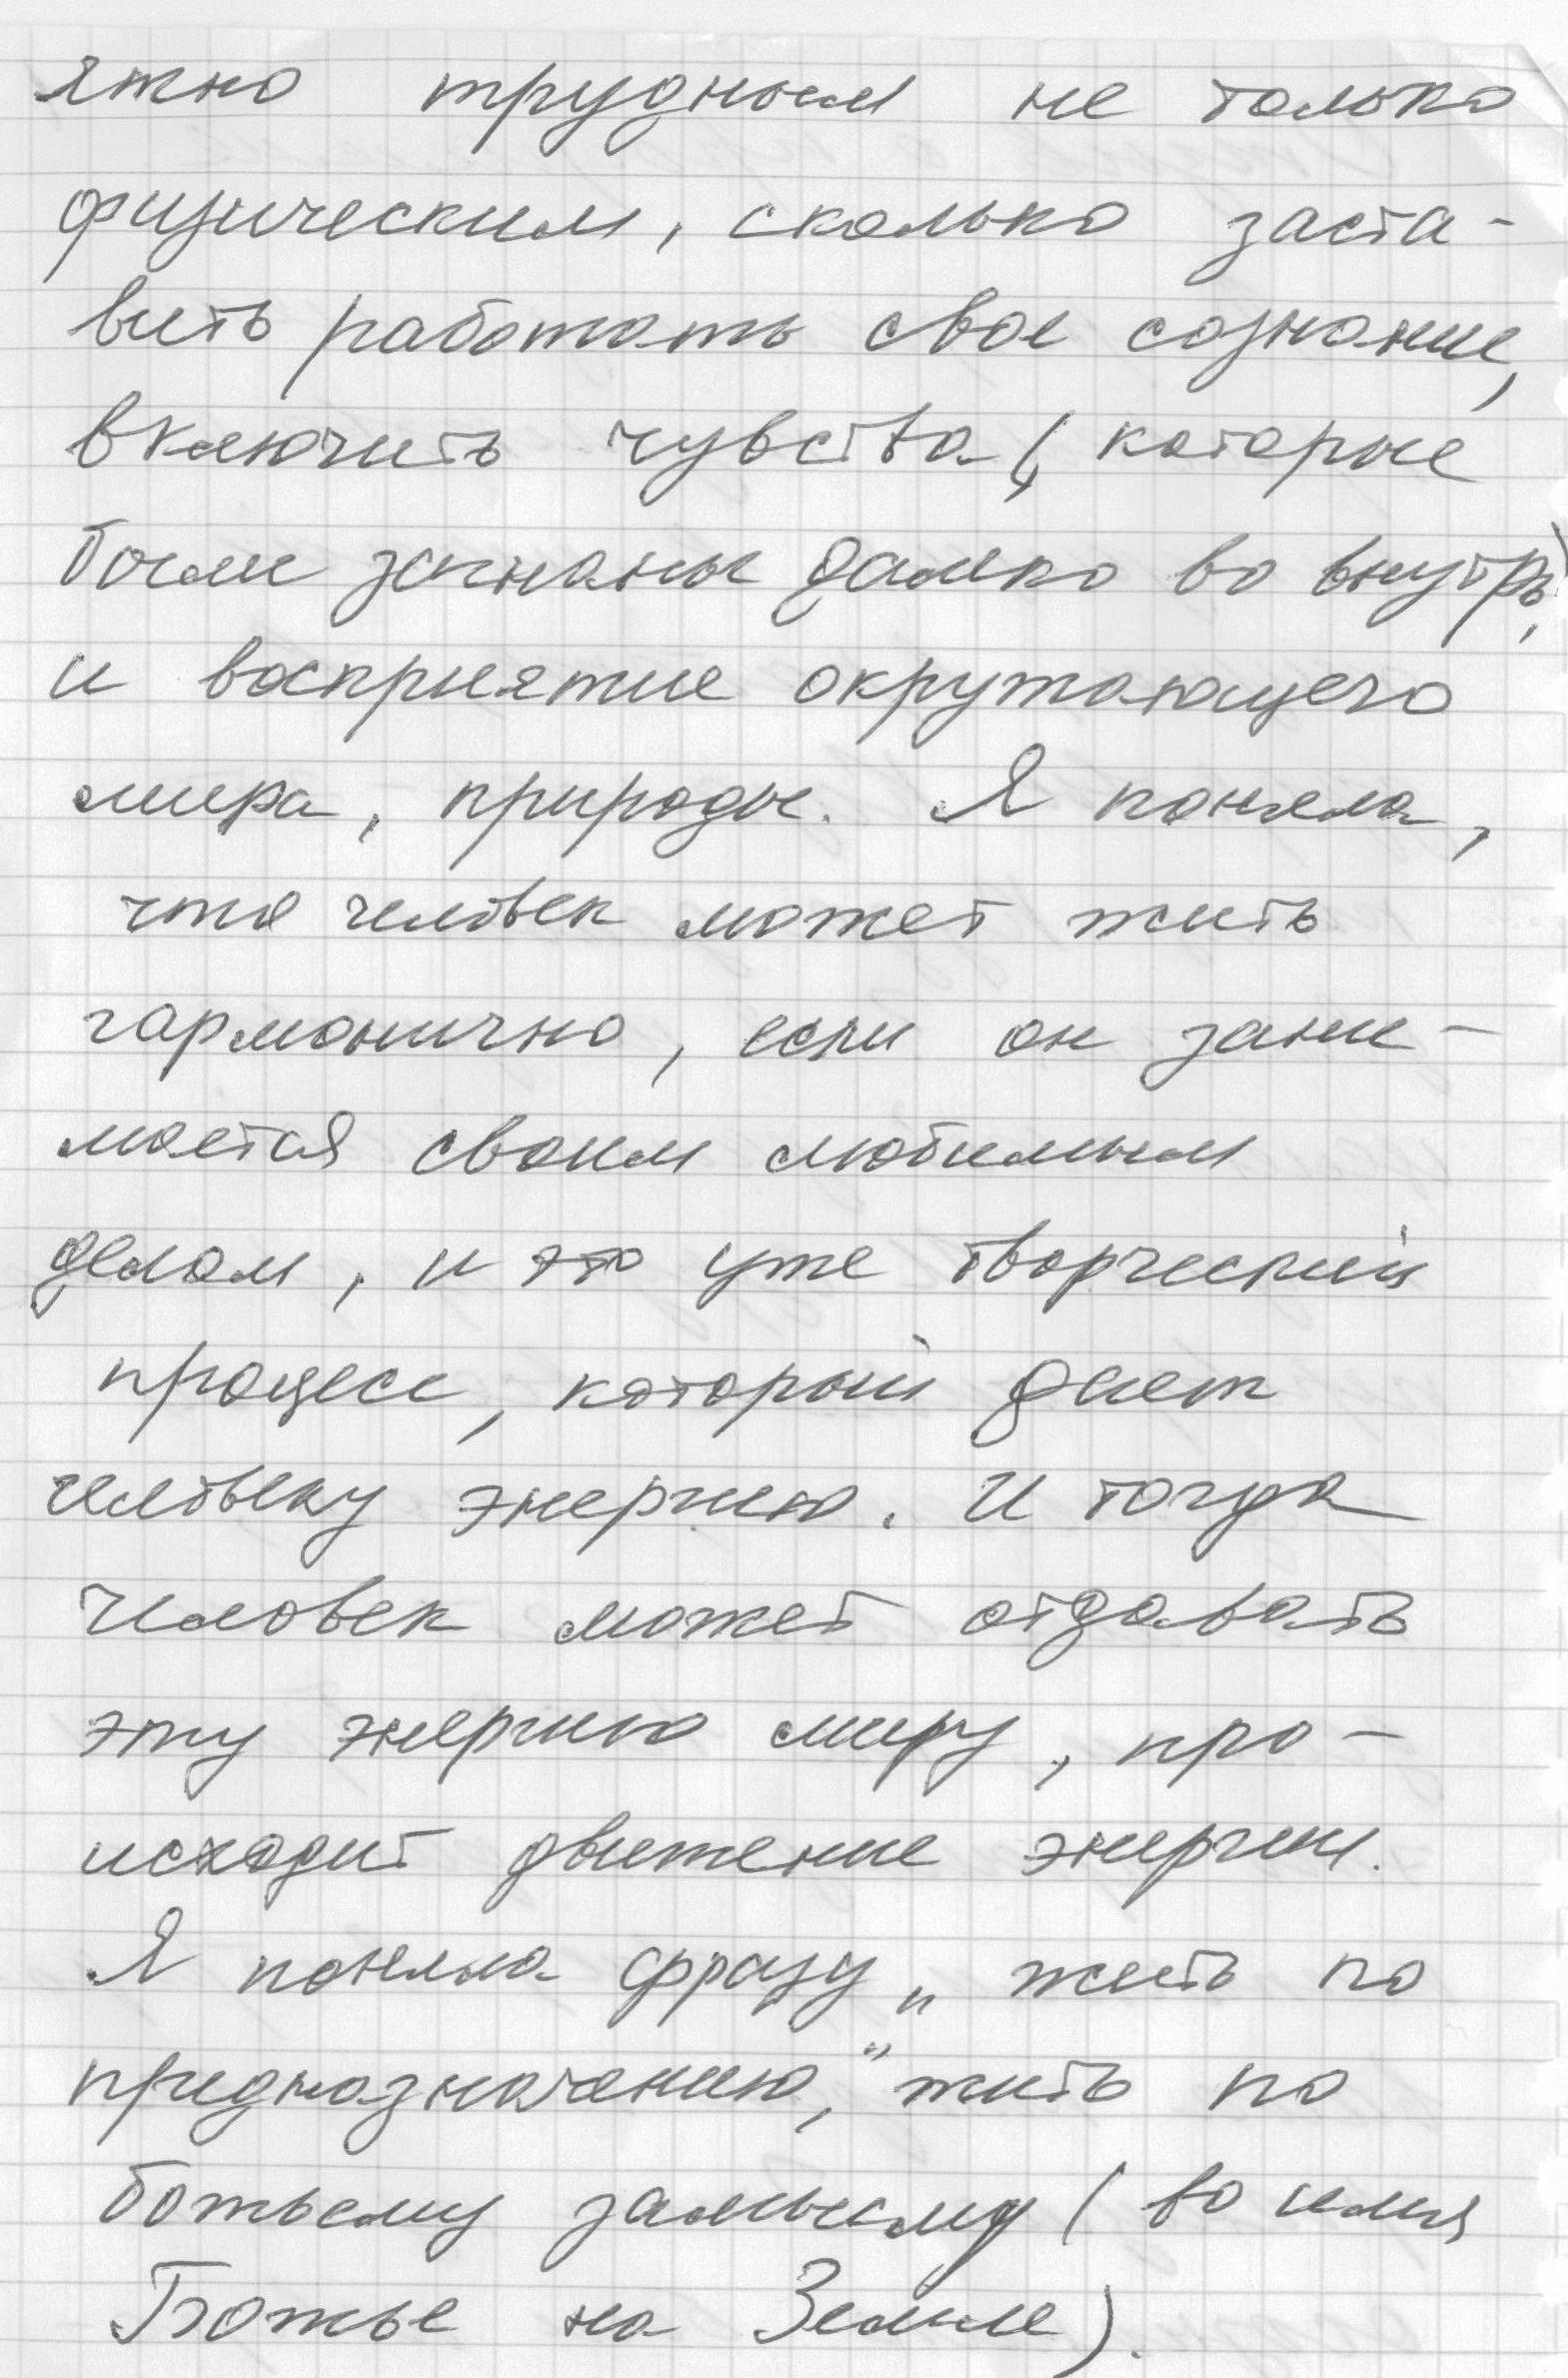 ятно трудным не только
физическим, сколько заста-
вить работать свое сознание,
включить чувства (, которые
были загнаны далеко во внутрь),
и восприятие окружающего
мира, природы. Я поняла,
что человек может жить
гармонично, если он зани-
мается своим любимым
делом, и это уже творческий
процесс, который дает
человеку энергию. И тогда
человек может отдавать
эту энергию миру, про-
исходит движение энергии.
Я поняла фразу „жить по
предназначению," жить по
божьему замыслу (во имя
Божье на Земле).